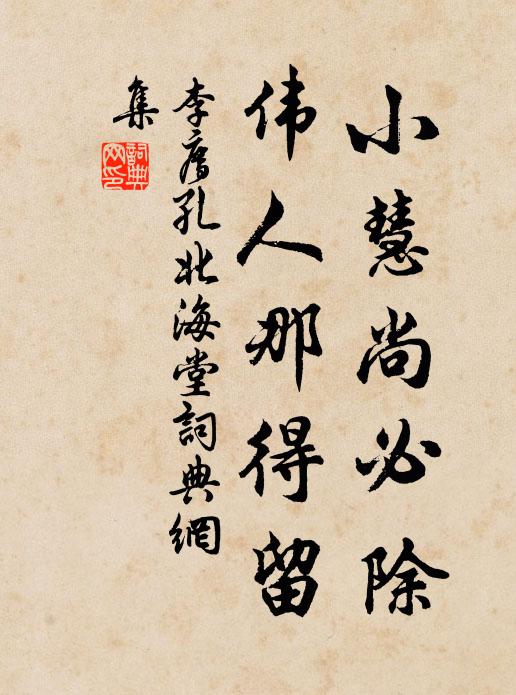 小慧尚必除
伟人那得留
李廌孔北海堂詞典網
集
詞典網印